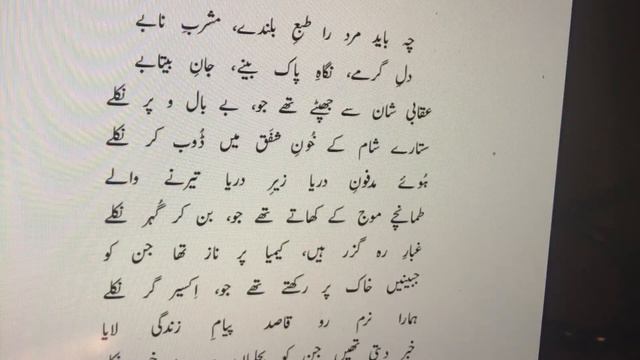 چہ باید مرد را طبعِ بلندے، مشربِ نابے
دلِ گرمے، نگاہِ پاک بینے، جانِ بیتابے
عقابی شان سے جھپٹے تھے جو، بے بال و پر نکلے
ستارے شام کے خُونِ شفَق میں ڈُوب کر نکلے
ہُوئے مدفونِ دریا زیرِ دریا تیرنے والے
طمانچے موج کے کھاتے تھے جو، بن کر گُہر نکلے
غبارِ رہ گزر ہیں، کیمیا پر ناز تھا جن کو
جبینیں خاک پر رکھتے تھے جو، اِکسیر گر نکلے
ہمارا نرم رو قاصد پیامِ زندگی لایا
خبر دیتی تھیں جن کو